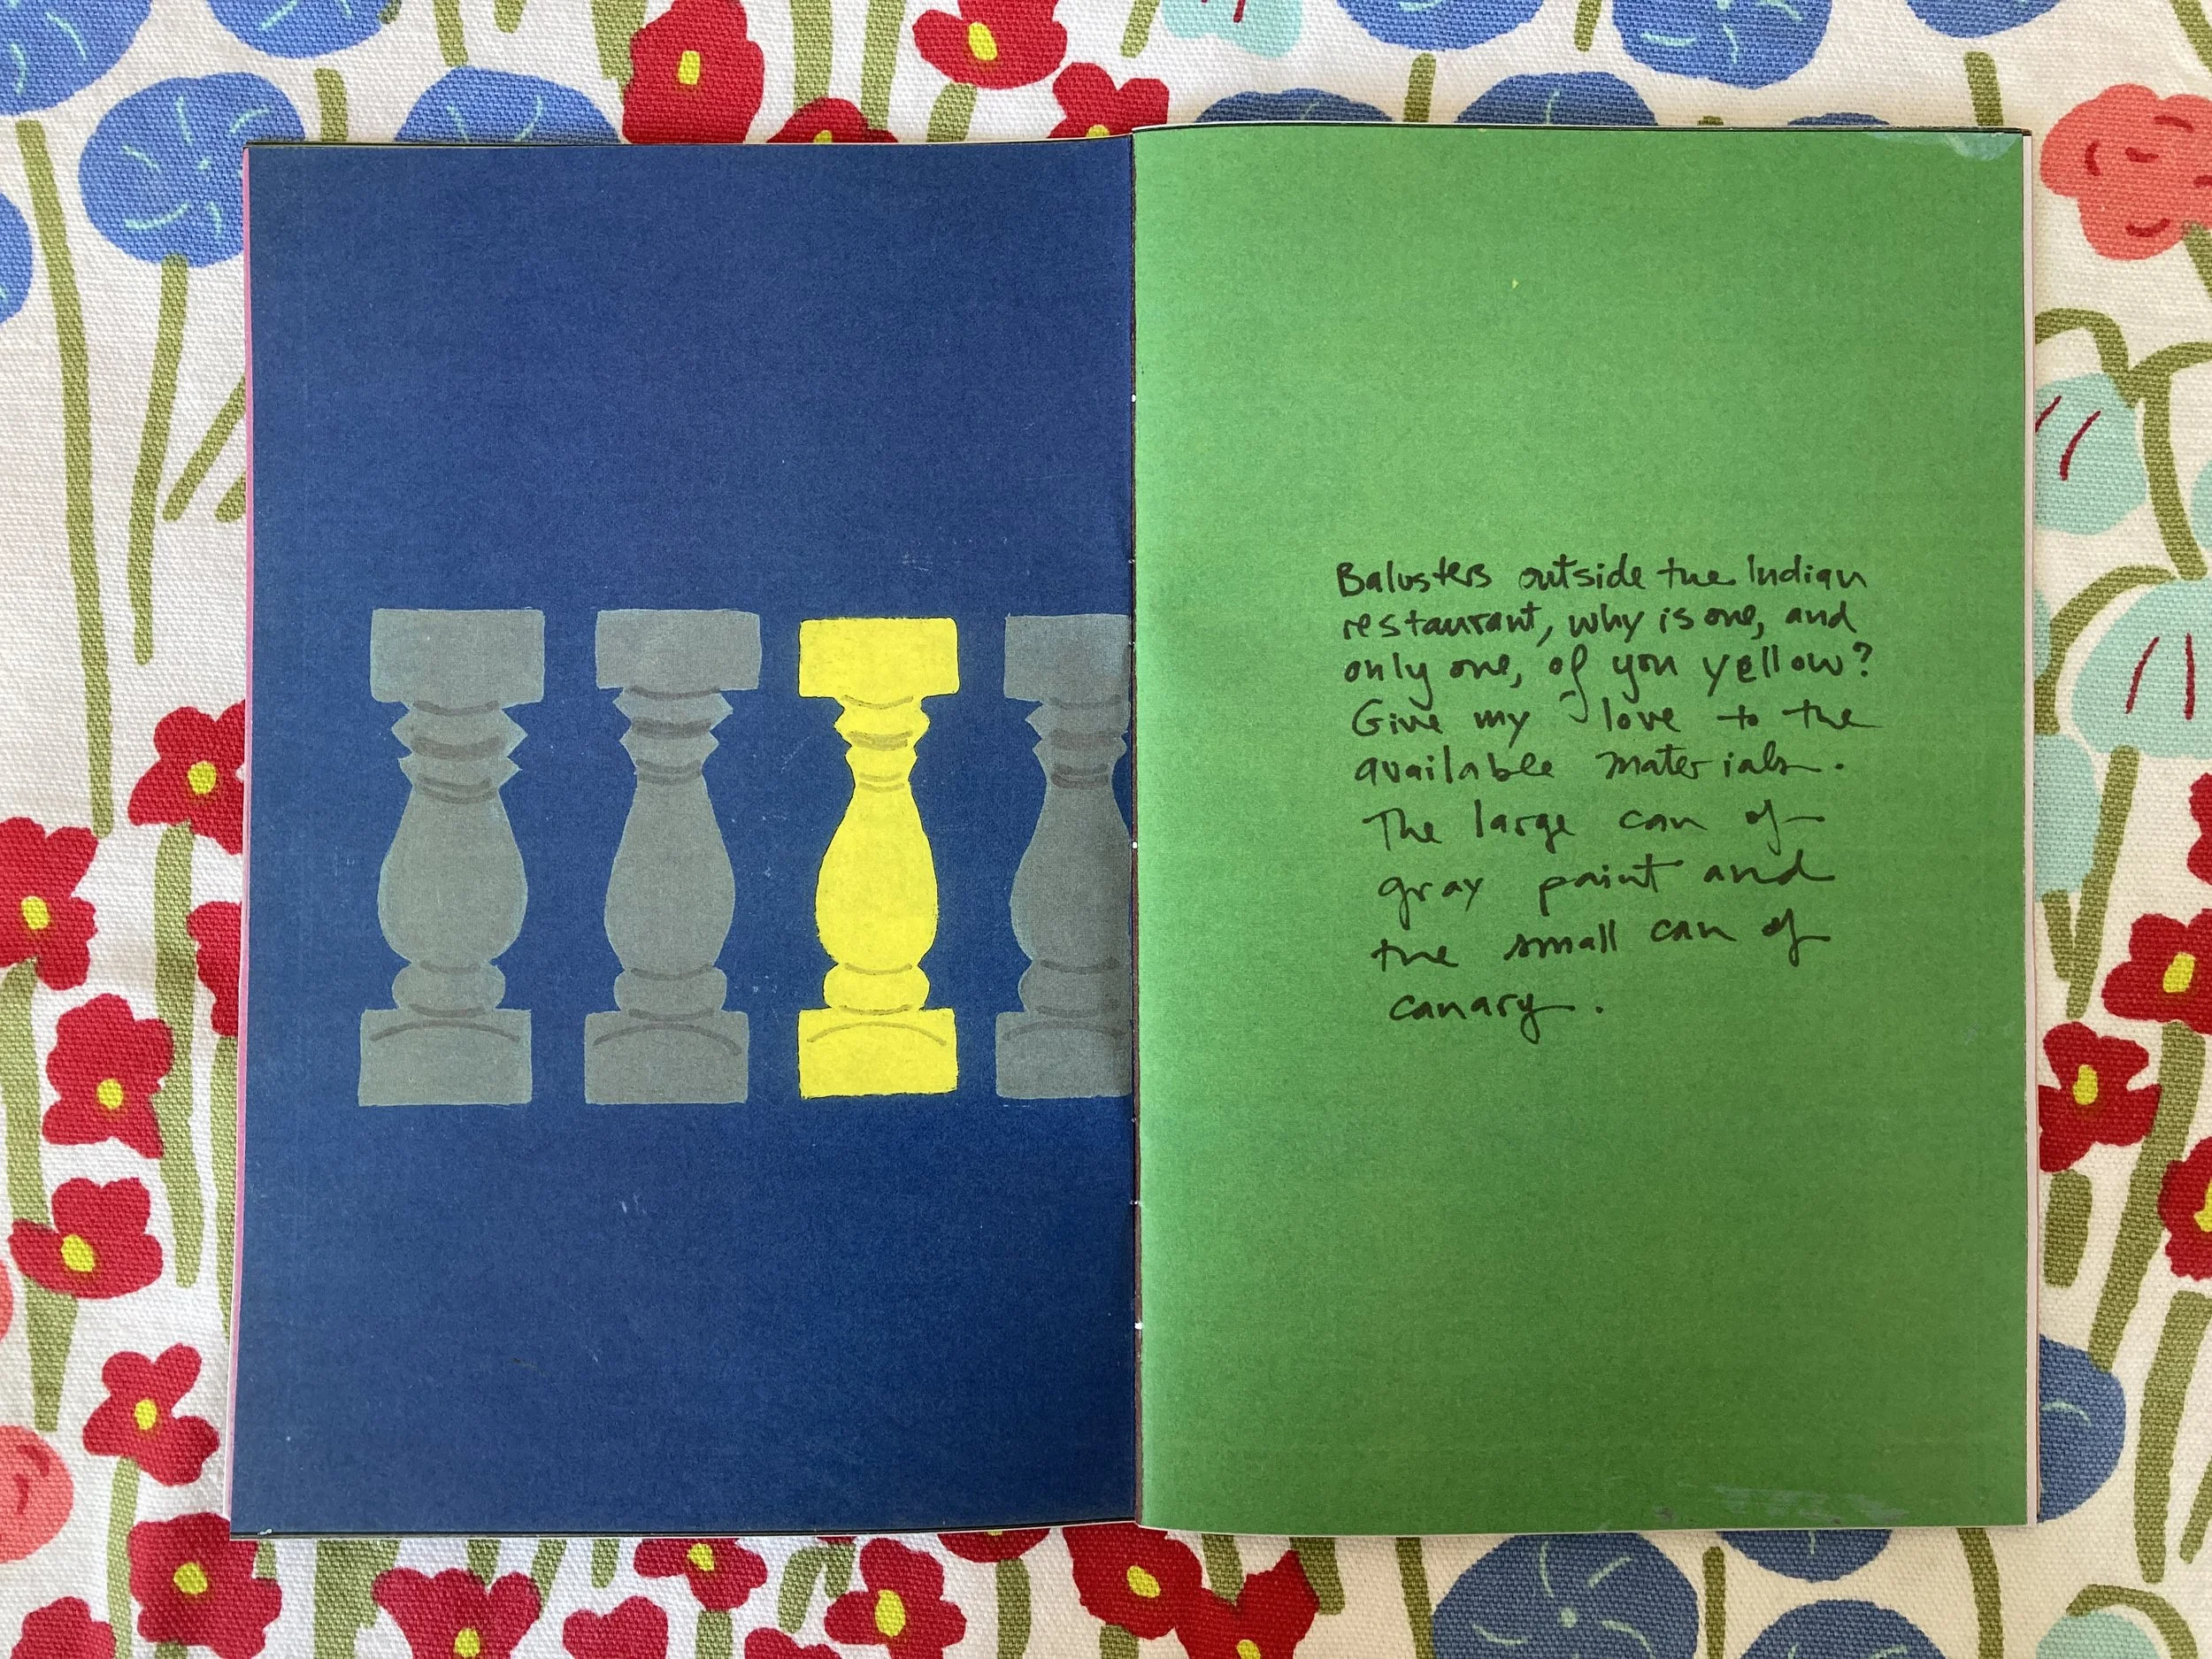 Balusters outside the Indian
restaurant, why is one, and
only one, of you yellow?
Give my love to the
available materials.
The large can of
gray paint and
the small can of
canary.